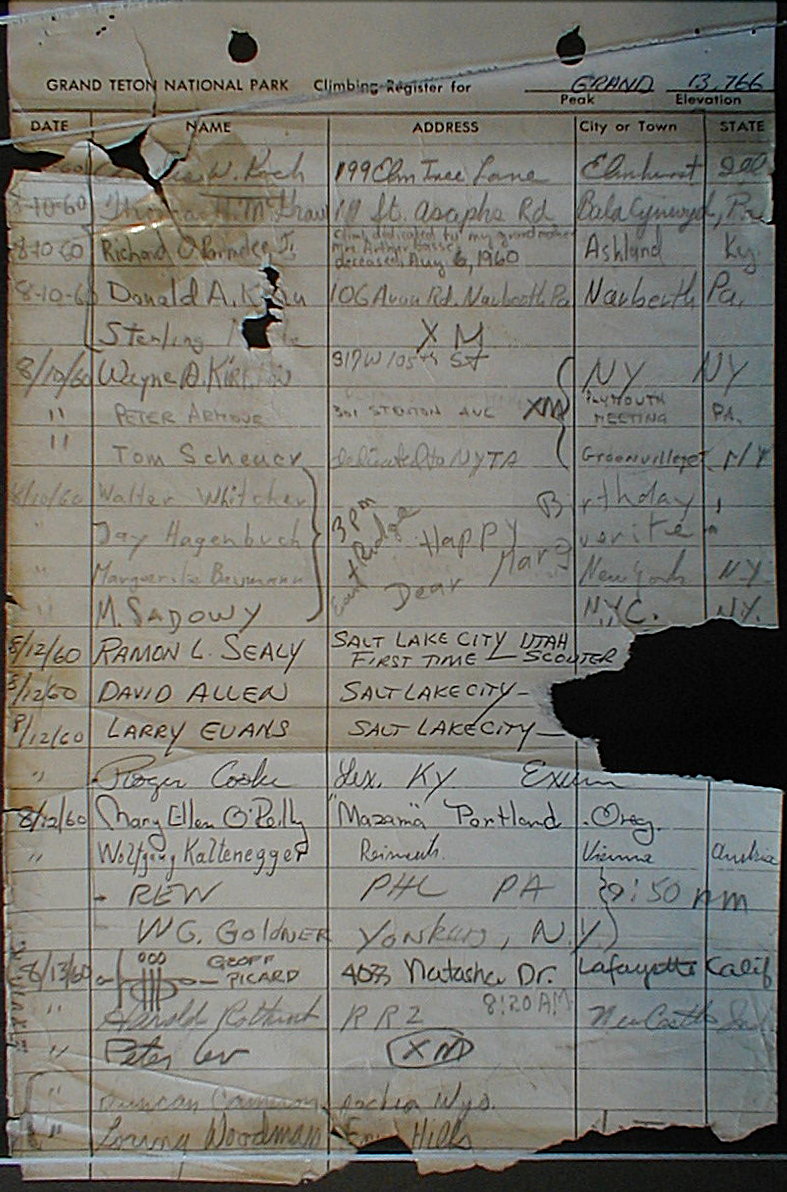 GRAND TETON NATIONAL PARK Climbing Register for GRAND 13,766
Peak Elevation
DATE NAME ADDRESS City or Town STATE
W. Koch 199 Elm Tree Lane Elmhurst Ill
8-10-60 Thomas H. McGraw 111 St. Asaphs Rd Bala Cynwyd, Pa
Climb dedicated to my grandmother
8-10-60 Richard O. Parmelee, Jr. Mrs. Arthur Ashland Ky.
deceased, Aug 6, 1960
8-10-60 Donald A. 106 Avon Rd. Narberth Pa Narberth Pa.
Sterling XM
8/10/60 Wayne D. 317 W 105th St NY NY
" PETER 301 STENTON AVE XM PLYMOUTH MEETING PA.
" Tom Scheuer dedicated to NYTA Greenville NY
8/10/60 Walter Whitcher 3 PM Birthday,
" Jay Hagenbuch East Ridge Happy
" Marguerite Baumann Dear Marguerite New York NY.
" M. SADOWY N.Y.C. NY.
8/12/60 RAMON L. SEALY SALT LAKE CITY UTAH
FIRST TIME – SCOUTER
8/12/60 DAVID ALLEN SALT LAKE CITY –
8/12/60 LARRY EVANS SALT LAKE CITY –
" Roger Cooke Lex. Ky Exum
8/12/60 Mary Ellen O'Reilly "Mazama" Portland Oreg.
" Wolfgang Kaltenegger Vienna Austria
REW PHL PA 9:50 am
W G. GOLDNER Yonkers, N.Y.
8/13/60 GEOFF PICARD 4033 Natasha Dr. Lafayette Calif
8:20 AM
" Harold R R 2 New Castle Ind
" Peter Lev XM
" Duncan Cameron Wyo.
" Loring Woodman Hills